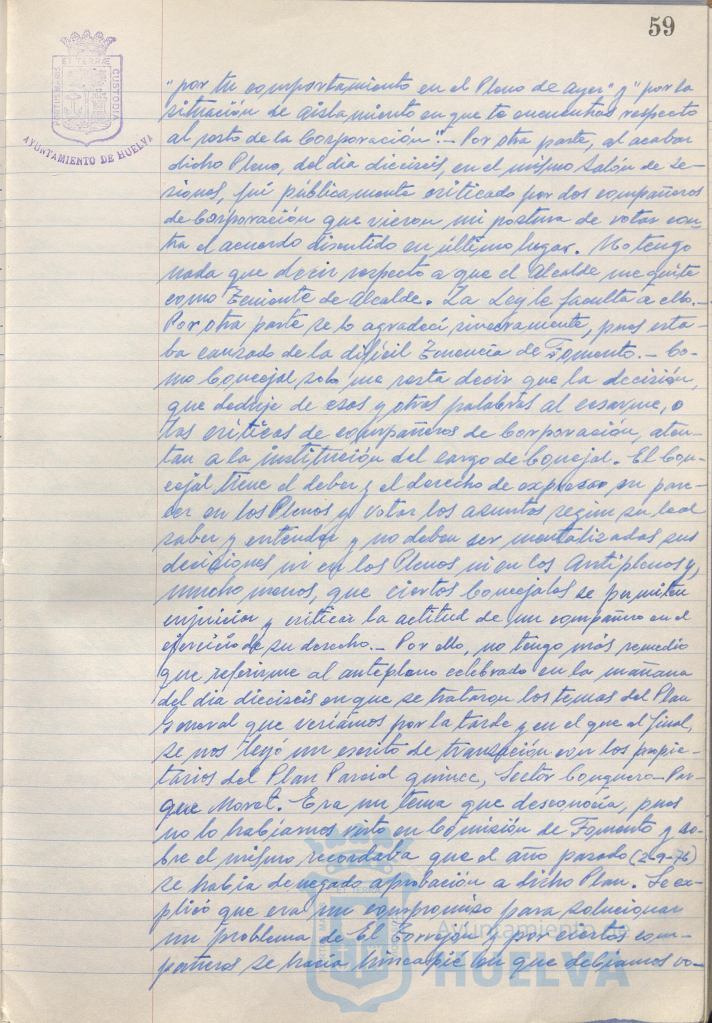 59
PORTUS MARIS
ET TERRÆ
CUSTODIA
AYUNTAMIENTO DE HUELVA
"por tu comportamiento en el Pleno de ayer" y "por la
situación de aislamiento en que te encuentras respecto
al resto de la Corporación".- Por otra parte, al acabar
dicho Pleno, del dia dieciseis, en el mismo Salón de Se-
siones, fui públicamente criticado por dos compañeros
de Corporación que vieron mi postura de votar con-
tra el acuerdo discutido en último lugar. No tengo
nada que decir respecto a que el Alcalde me quite
como Teniente de Alcalde. La Ley le faculta a ello.-
Por otra parte se lo agradecí sinceramente, pues esta-
ba cansado de la difícil Tenencia de Fomento.- Co-
mo Concejal solo me resta decir que la decisión,
que deduje de esas y otras palabras al cesarme, o
las criticas de compañeros de Corporación, aten-
tan a la institución del cargo de Concejal. El Con-
cejal tiene el deber y el derecho de expresar su pare-
cer en los Plenos y votar los asuntos según su leal
saber y entender y no deben ser mentalizadas sus
decisiones ni en los Plenos ni en los Antiplenos y,
mucho menos, que ciertos Concejales se permitan
enjuiciar y criticar la actitud de un compañero en el
ejercicio de su derecho.- Por ello, no tengo más remedio
que referirme al antepleno celebrado en la mañana
del dia dieciseis en que se trataron los temas del Plan
General que veríamos por la tarde y en el que al final,
se nos leyó un escrito de transación con los propie-
tarios del Plan Parcial quince, Sector Conquero-Par-
que Moret. Era un tema que desconocía, pues
no lo habíamos visto en Comisión de Fomento y so-
bre el mismo recordaba que el año pasado (2-9-76)
se habia denegado aprobación a dicho Plan. Se ex-
plicó que era un compromiso para solucionar
un problema de El Torrejón y por ciertos com-
pañeros se hacía hincapié en que debíamos vo-
Ayuntamiento de
HUELVA